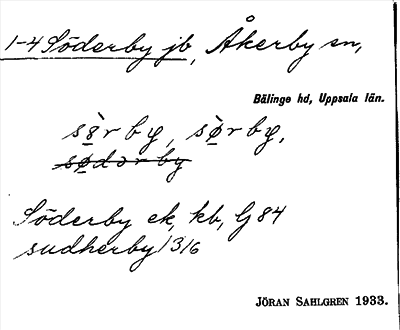 1-4 Söderby jb, Åkerby sn,
Bälinge hd, Uppsala län.
Söderby ek, kb, G 84
sudherby 1316
JÖRAN SAHLGREN 1933.